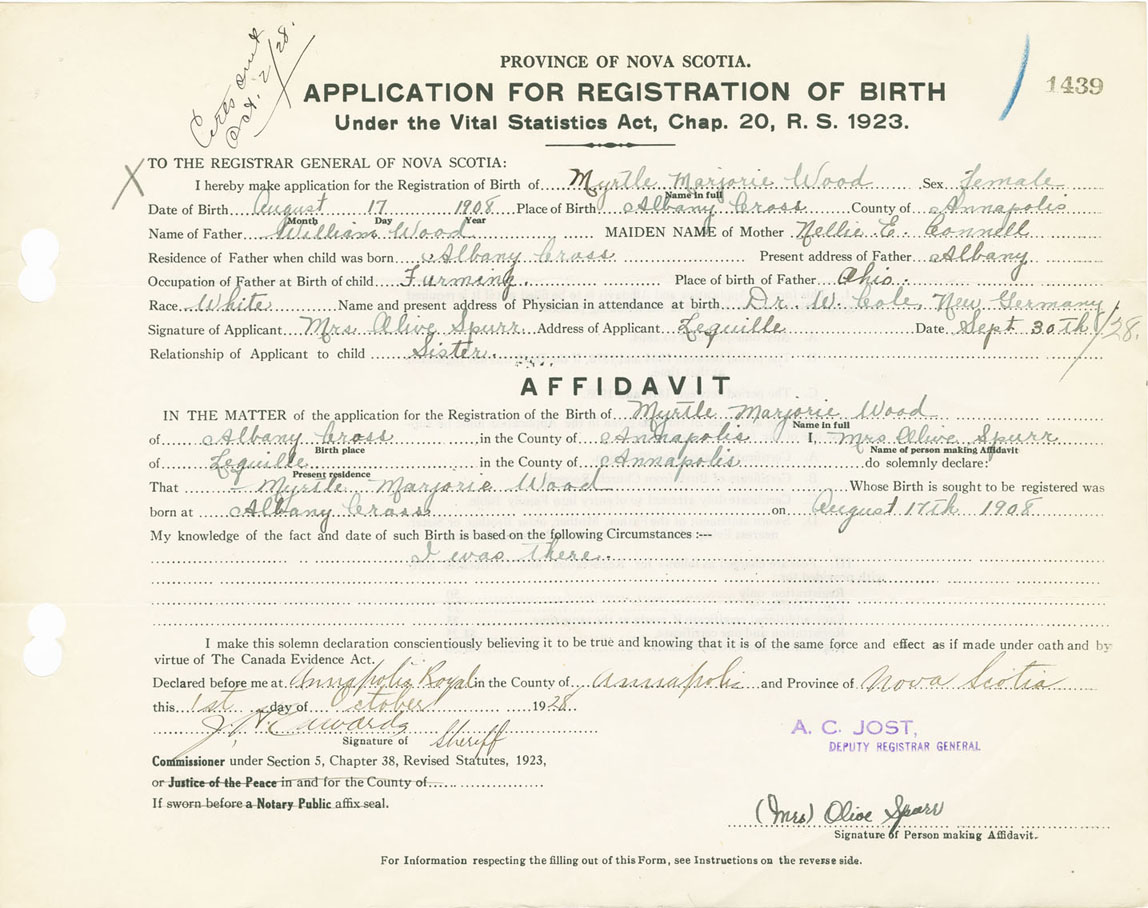 Certs out
Oct. 2/28.
1439
PROVINCE OF NOVA SCOTIA.
APPLICATION FOR REGISTRATION OF BIRTH
Under the Vital Statistics Act, Chap. 20, R. S. 1923.
X TO THE REGISTRAR GENERAL OF NOVA SCOTIA:
I hereby make application for the Registration of Birth of Myrtle Marjorie Wood Sex Female
Name in full
Date of Birth August 17 1908 Place of Birth Albany Cross County of Annapolis
Month Day Year
Name of Father William Wood MAIDEN NAME of Mother Nellie E. Connell
Residence of Father when child was born Albany Cross Present address of Father Albany
Occupation of Father at Birth of child Farming. Place of birth of Father Ohio.
Race White Name and present address of Physician in attendance at birth Dr. W. Cole, New Germany
Signature of Applicant Mrs Olive Spurr Address of Applicant Lequille Date Sept 30th/28.
Relationship of Applicant to child Sister.
AFFIDAVIT
IN THE MATTER of the application for the Registration of the Birth of Myrtle Marjorie Wood
Name in full
of Albany Cross in the County of Annapolis I, Mrs Olive Spurr
Birth place Name of person making Affidavit
of Lequille in the County of Annapolis do solemnly declare:
Present residence
That Myrtle Marjorie Wood Whose Birth is sought to be registered was
born at Albany Cross on August 17th 1908
My knowledge of the fact and date of such Birth is based on the following Circumstances :---
I was there.
I make this solemn declaration conscientiously believing it to be true and knowing that it is of the same force and effect as if made under oath and by
virtue of The Canada Evidence Act.
Declared before me at Annapolis Royal in the County of Annapolis and Province of Nova Scotia
this 1st day of October 1928.
J. H. Edwards
Signature of Sheriff
A. C. JOST,
DEPUTY REGISTRAR GENERAL
Commissioner under Section 5, Chapter 38, Revised Statutes, 1923,
or Justice of the Peace in and for the County of
If sworn before a Notary Public affix seal.
(Mrs) Olive Spurr
Signature of Person making Affidavit.
For Information respecting the filling out of this Form, see Instructions on the reverse side.